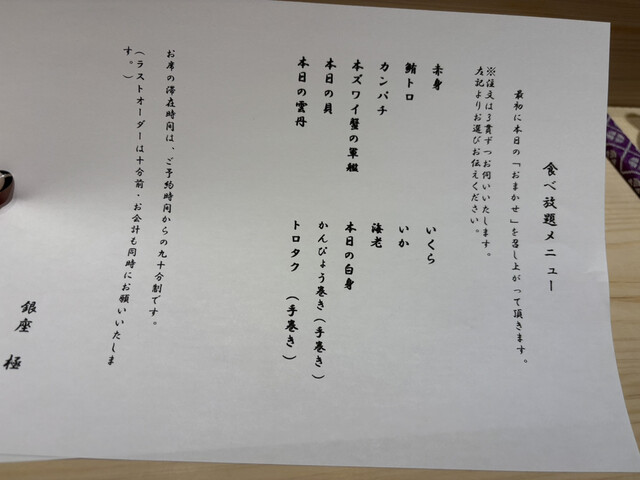 食べ放題メニュー
最初に本日の「おまかせ」を召し上がって頂きます。
※注文は3貫ずつお伺いいたします。
左記よりお選びお伝えください。
赤身
いくら
鮪トロ
いか
カンパチ
海老
本ズワイ蟹の軍艦
本日の白身
本日の貝
かんぴょう巻き(手巻き)
本日の雲丹
トロタク (手巻き)
お席の滞在時間は、ご予約時間からの九十分制です。
(ラストオーダーは十分前・お会計も同時にお願いいたしま
す。)
銀座 極